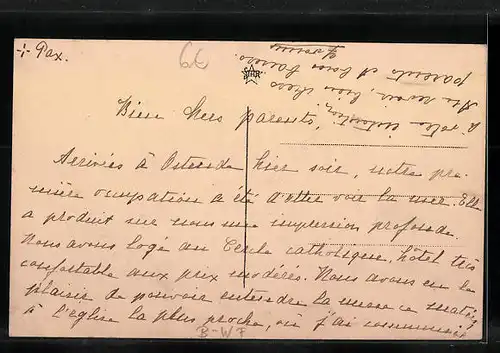 -:- Pax.
6€
STAR
Bien chers parents,
Arrivées à Ostende hier soir, notre pre-
mière occupation a été d'aller voir la mer. Elle
a produit sur nous une impression profonde.
Nous avons logé au Cercle catholique, hôtel très
confortable aux prix modérés. Nous avons eu le
plaisir de pouvoir entendre la messe ce matin,
à l'église la plus proche, où j'ai communié
à votre intention.
Au revoir, bien chers
parents et bons baisers.
B-WF